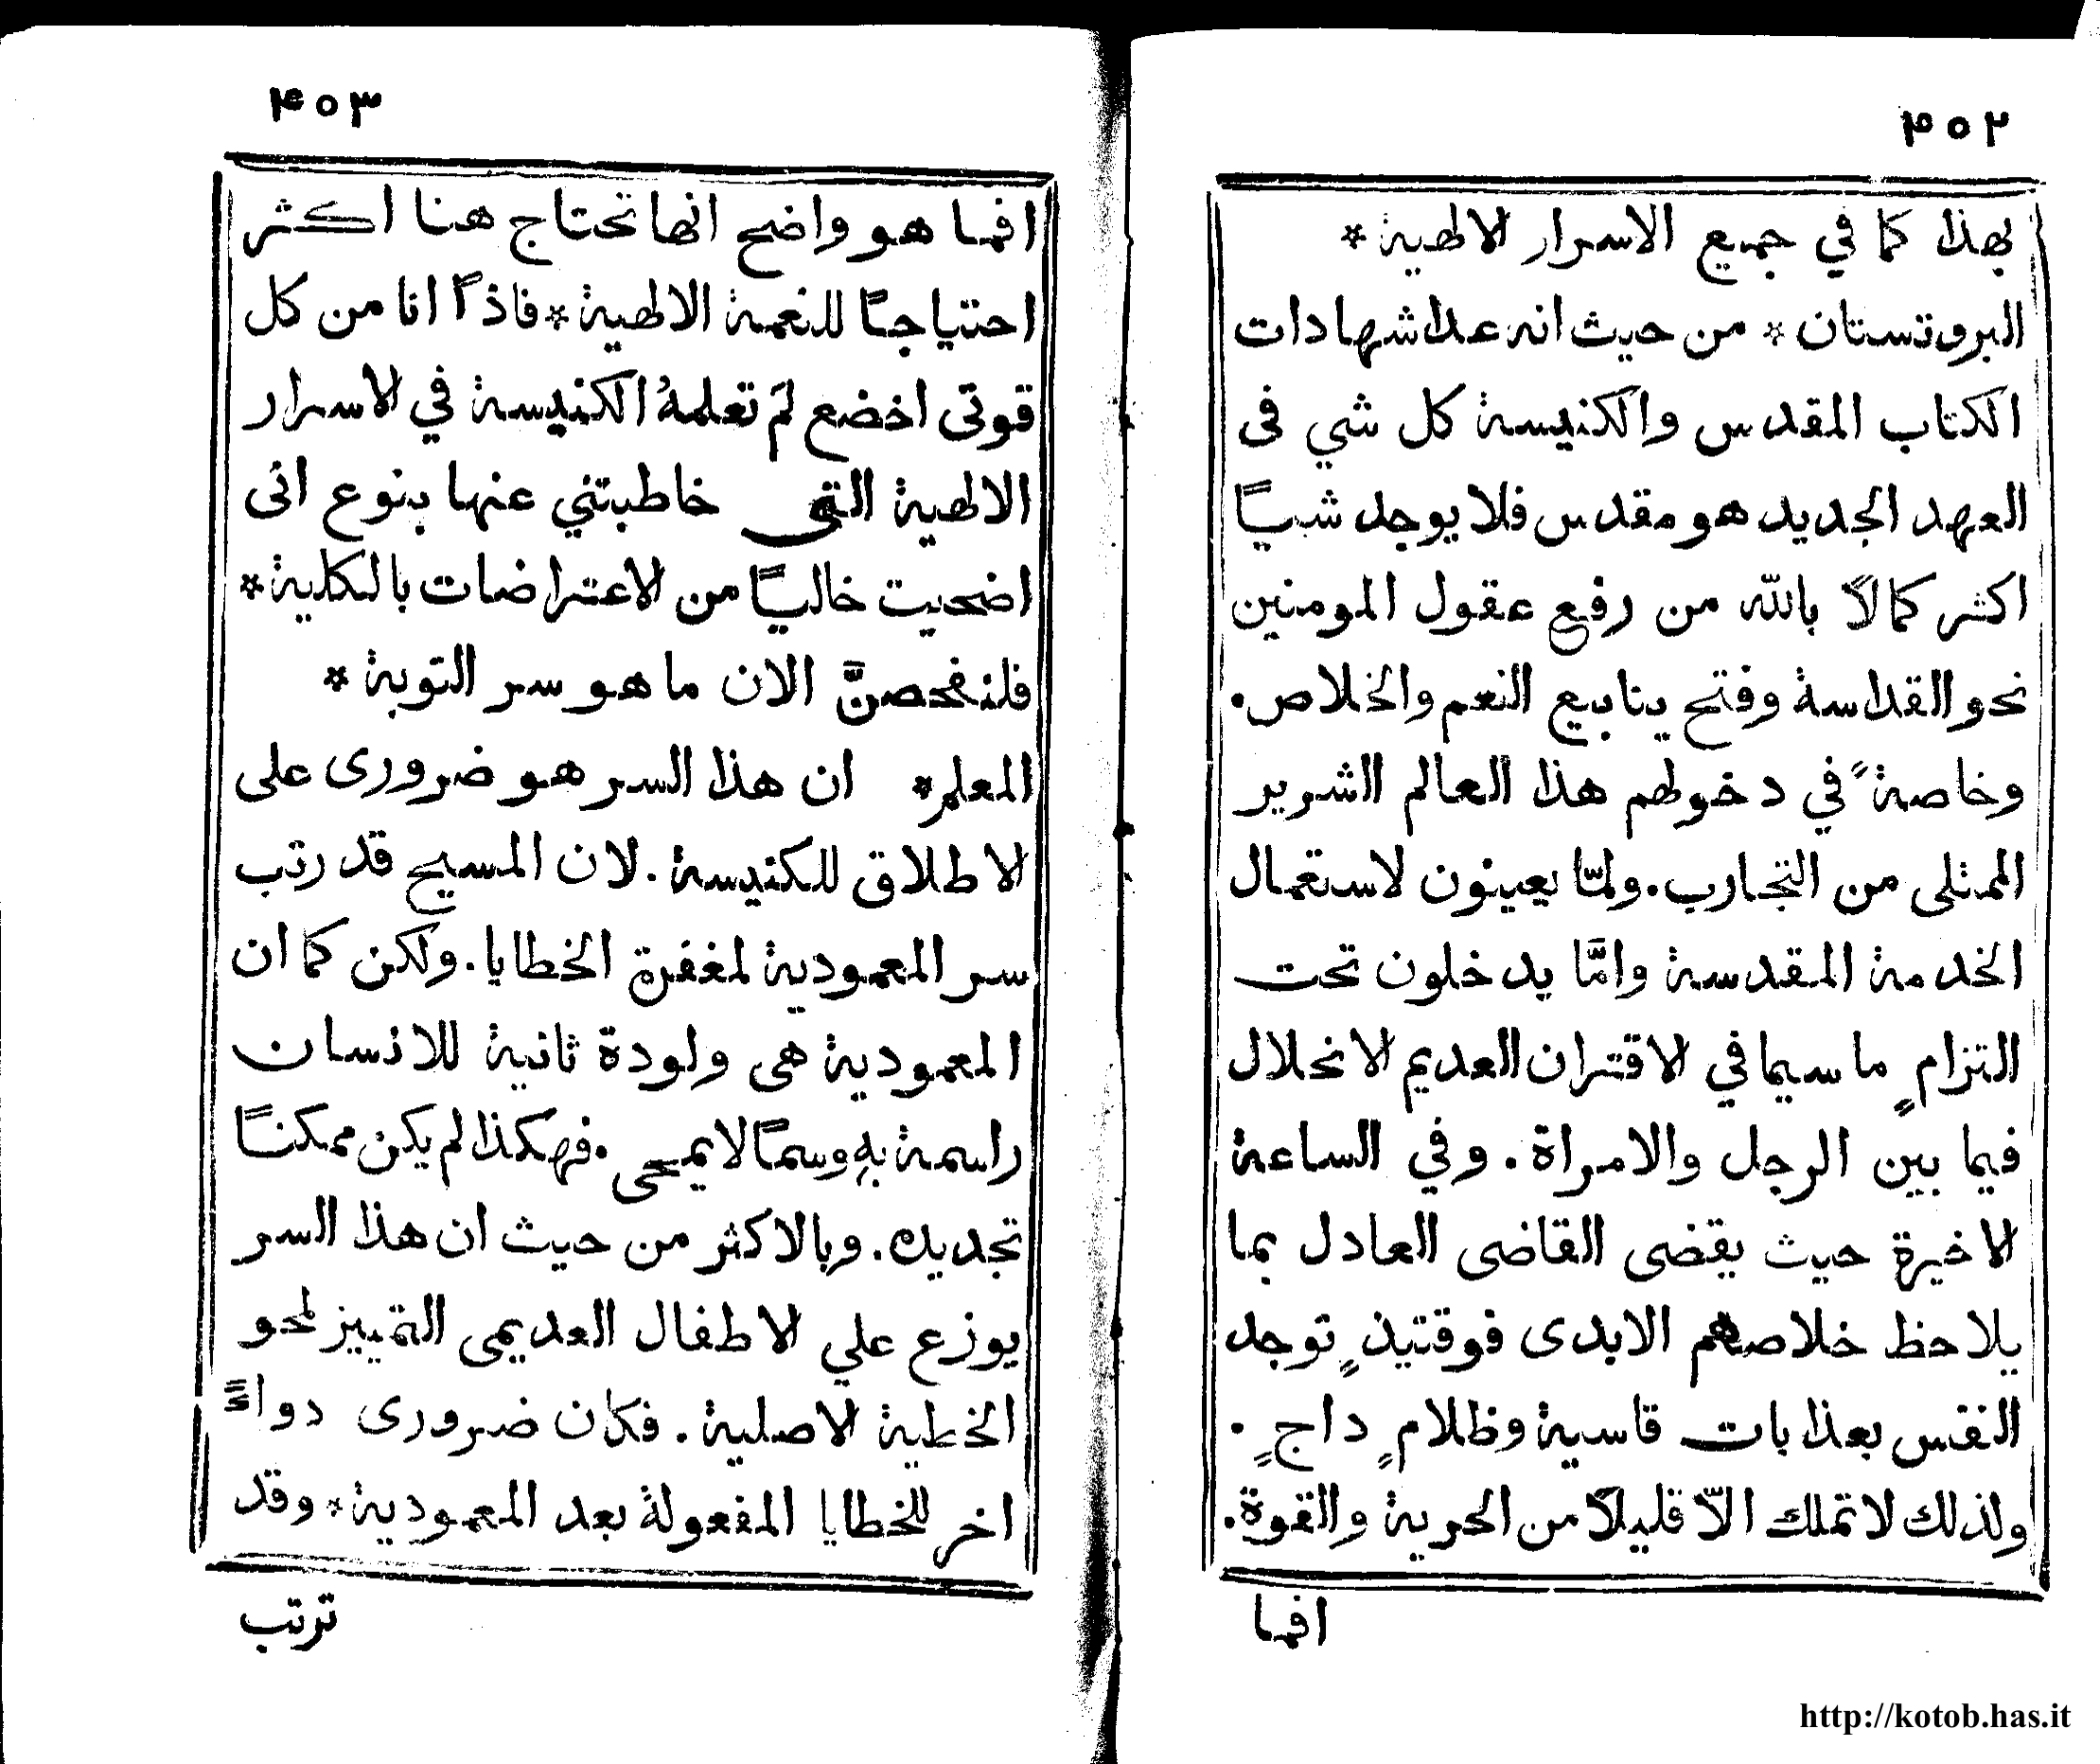 ٤٥٢
بهذا كما في جميع الاسرار الالهية *
البروتستان * من حيث انه عدا شهادات
الكتاب المقدس والكنيسة كل شي فى
العهد الجديد هو مقدس فلا يوجد شيًا
اكثر كمالاً بالله من رفع عقول المومنين
نحو القداسة وفتح ينابيع النعم والخلاص.
وخاصةً في دخولهم هذا العالم الشرير
الممتلى من التجارب. ولمّا يعينون لاستعمال
الخدمة المقدسة وامَّا يدخلون تحت
التزامٍ ما سيما في الاقتران العديم الانحلال
فيما بين الرجل والامراة. وفي الساعة
الاخيرة حيث يقضى القاضى العادل بما
يلاحظ خلاصهم الابدى فوقتيذٍ توجد
النفس بعذابات قاسية وظلامٍ داجٍ.
ولذلك لا تملك الاّ قليلاً من الحرية والقوة.
افما
٤٥٣
افما هو واضح انها تحتاج هنا اكثر
احتياجًا للنعمة الالهية * فاذًا انا من كل
قوتى اخضع لمَ تعلمهُ الكنيسة في الاسرار
الالهية التى خاطبتني عنها بنوع انى
اضحيت خاليًا من الاعتراضات بالكلية *
فلنفحصنَّ الان ما هو سر التوبة *
المعلم * ان هذا السر هو ضرورى على
الاطلاق للكنيسة. لان المسيح قد رتب
سر المعمودية لمغفرة الخطايا. ولكن كما ان
المعمودية هى ولودة ثانية للانسان
راسمة بهِ وسمًا لا يمحى. فهكذا لم يكن ممكنًا
تجديده. وبالاكثر من حيث ان هذا السر
يوزع علي الاطفال العديمى التمييز لمحو
الخطية الاصلية. فكان ضرورى دواءً
اخر للخطايا المفعولة بعد المعمودية * وقد
ترتب
http://kotob.has.it